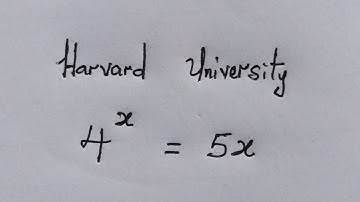 Harvard University
4ˣ = 5x